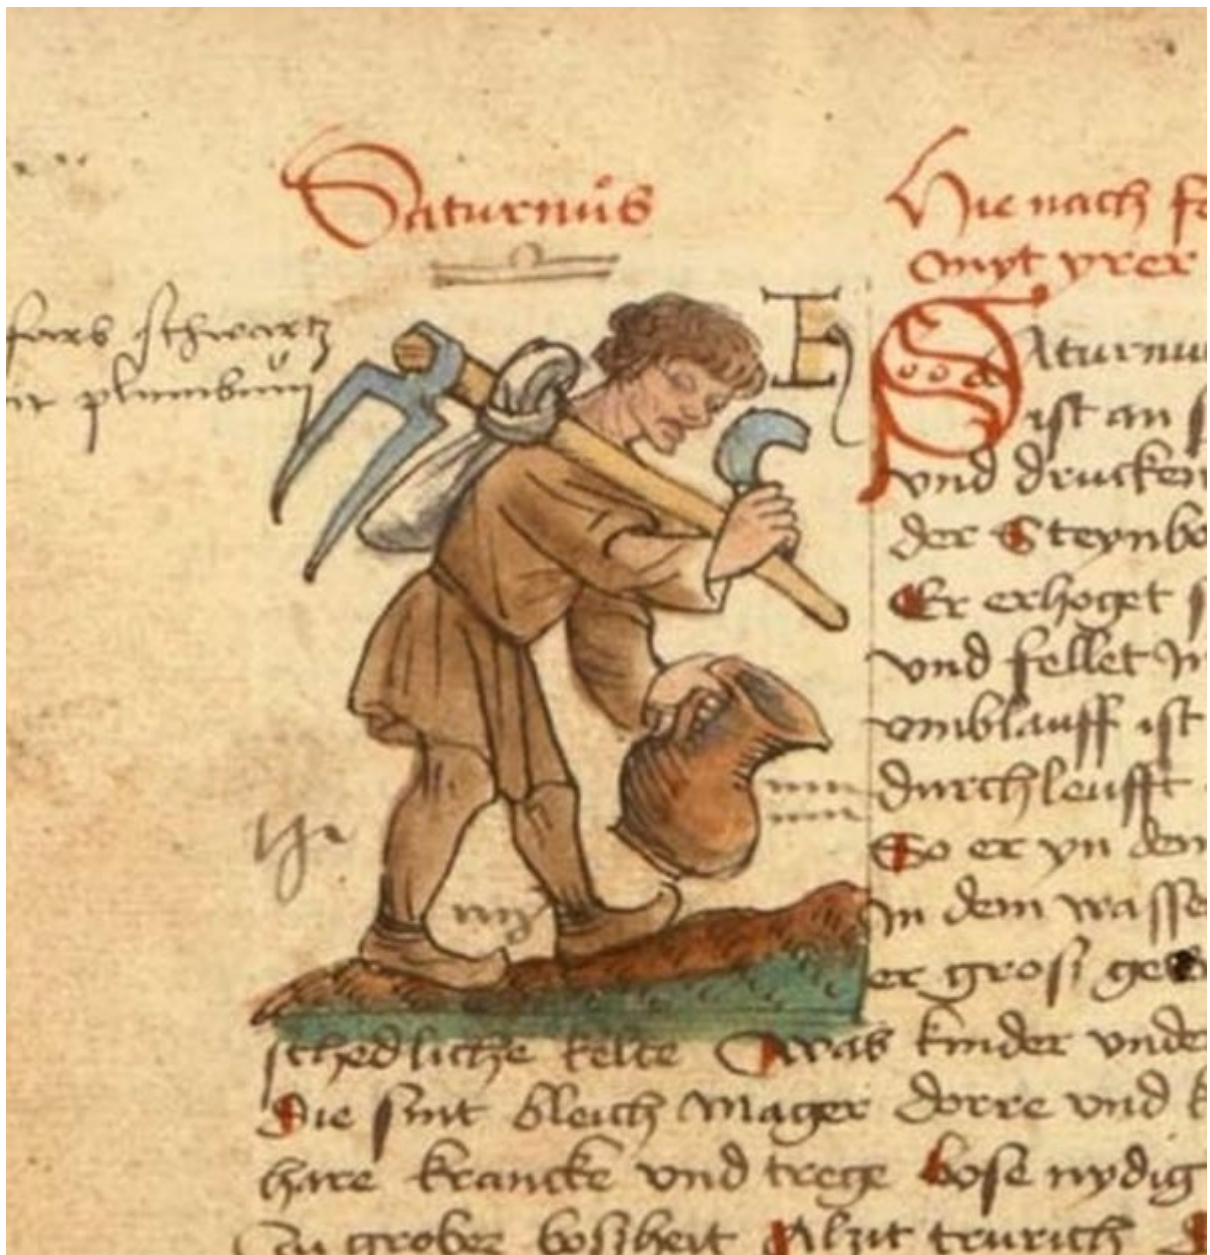 Saturnůs
Hie nach fo
myt yrer
farb schwartz
plumbům
Saturnu
ist an s
vnd drucken
der Steynbo
Er erhoget s
vnd fellet jn
vmblauff ist
durchleufft
So er yn dem
jn dem wasse
er grosz ge
schedliche kelte Was kinder vnde
Sie sint bleich mager dorre vnd k
hare krancke vnd trege bose nydig
zu grober boszheit Alzit trurich